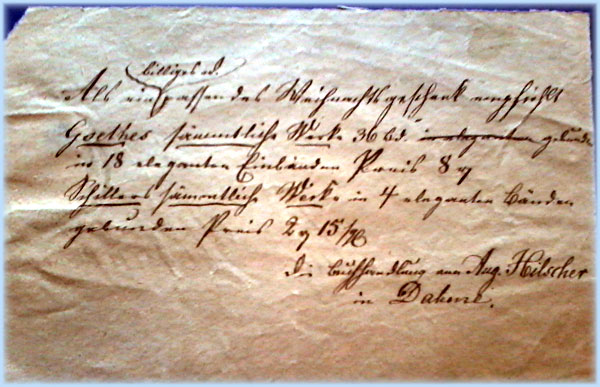 billiges od.
Als ein passendes Weihnachtsgeschenk empfiehlt
Goethes sämmtliche Werke 36 bd. in eleganten gebunden
in 18 eleganten Einbänden Preis 8
Schillers sämmtliche Werke in 4 eleganten Bänden
gebunden Preis 2 15
die Buchhandlung von Aug. Hilscher
in Dahme.